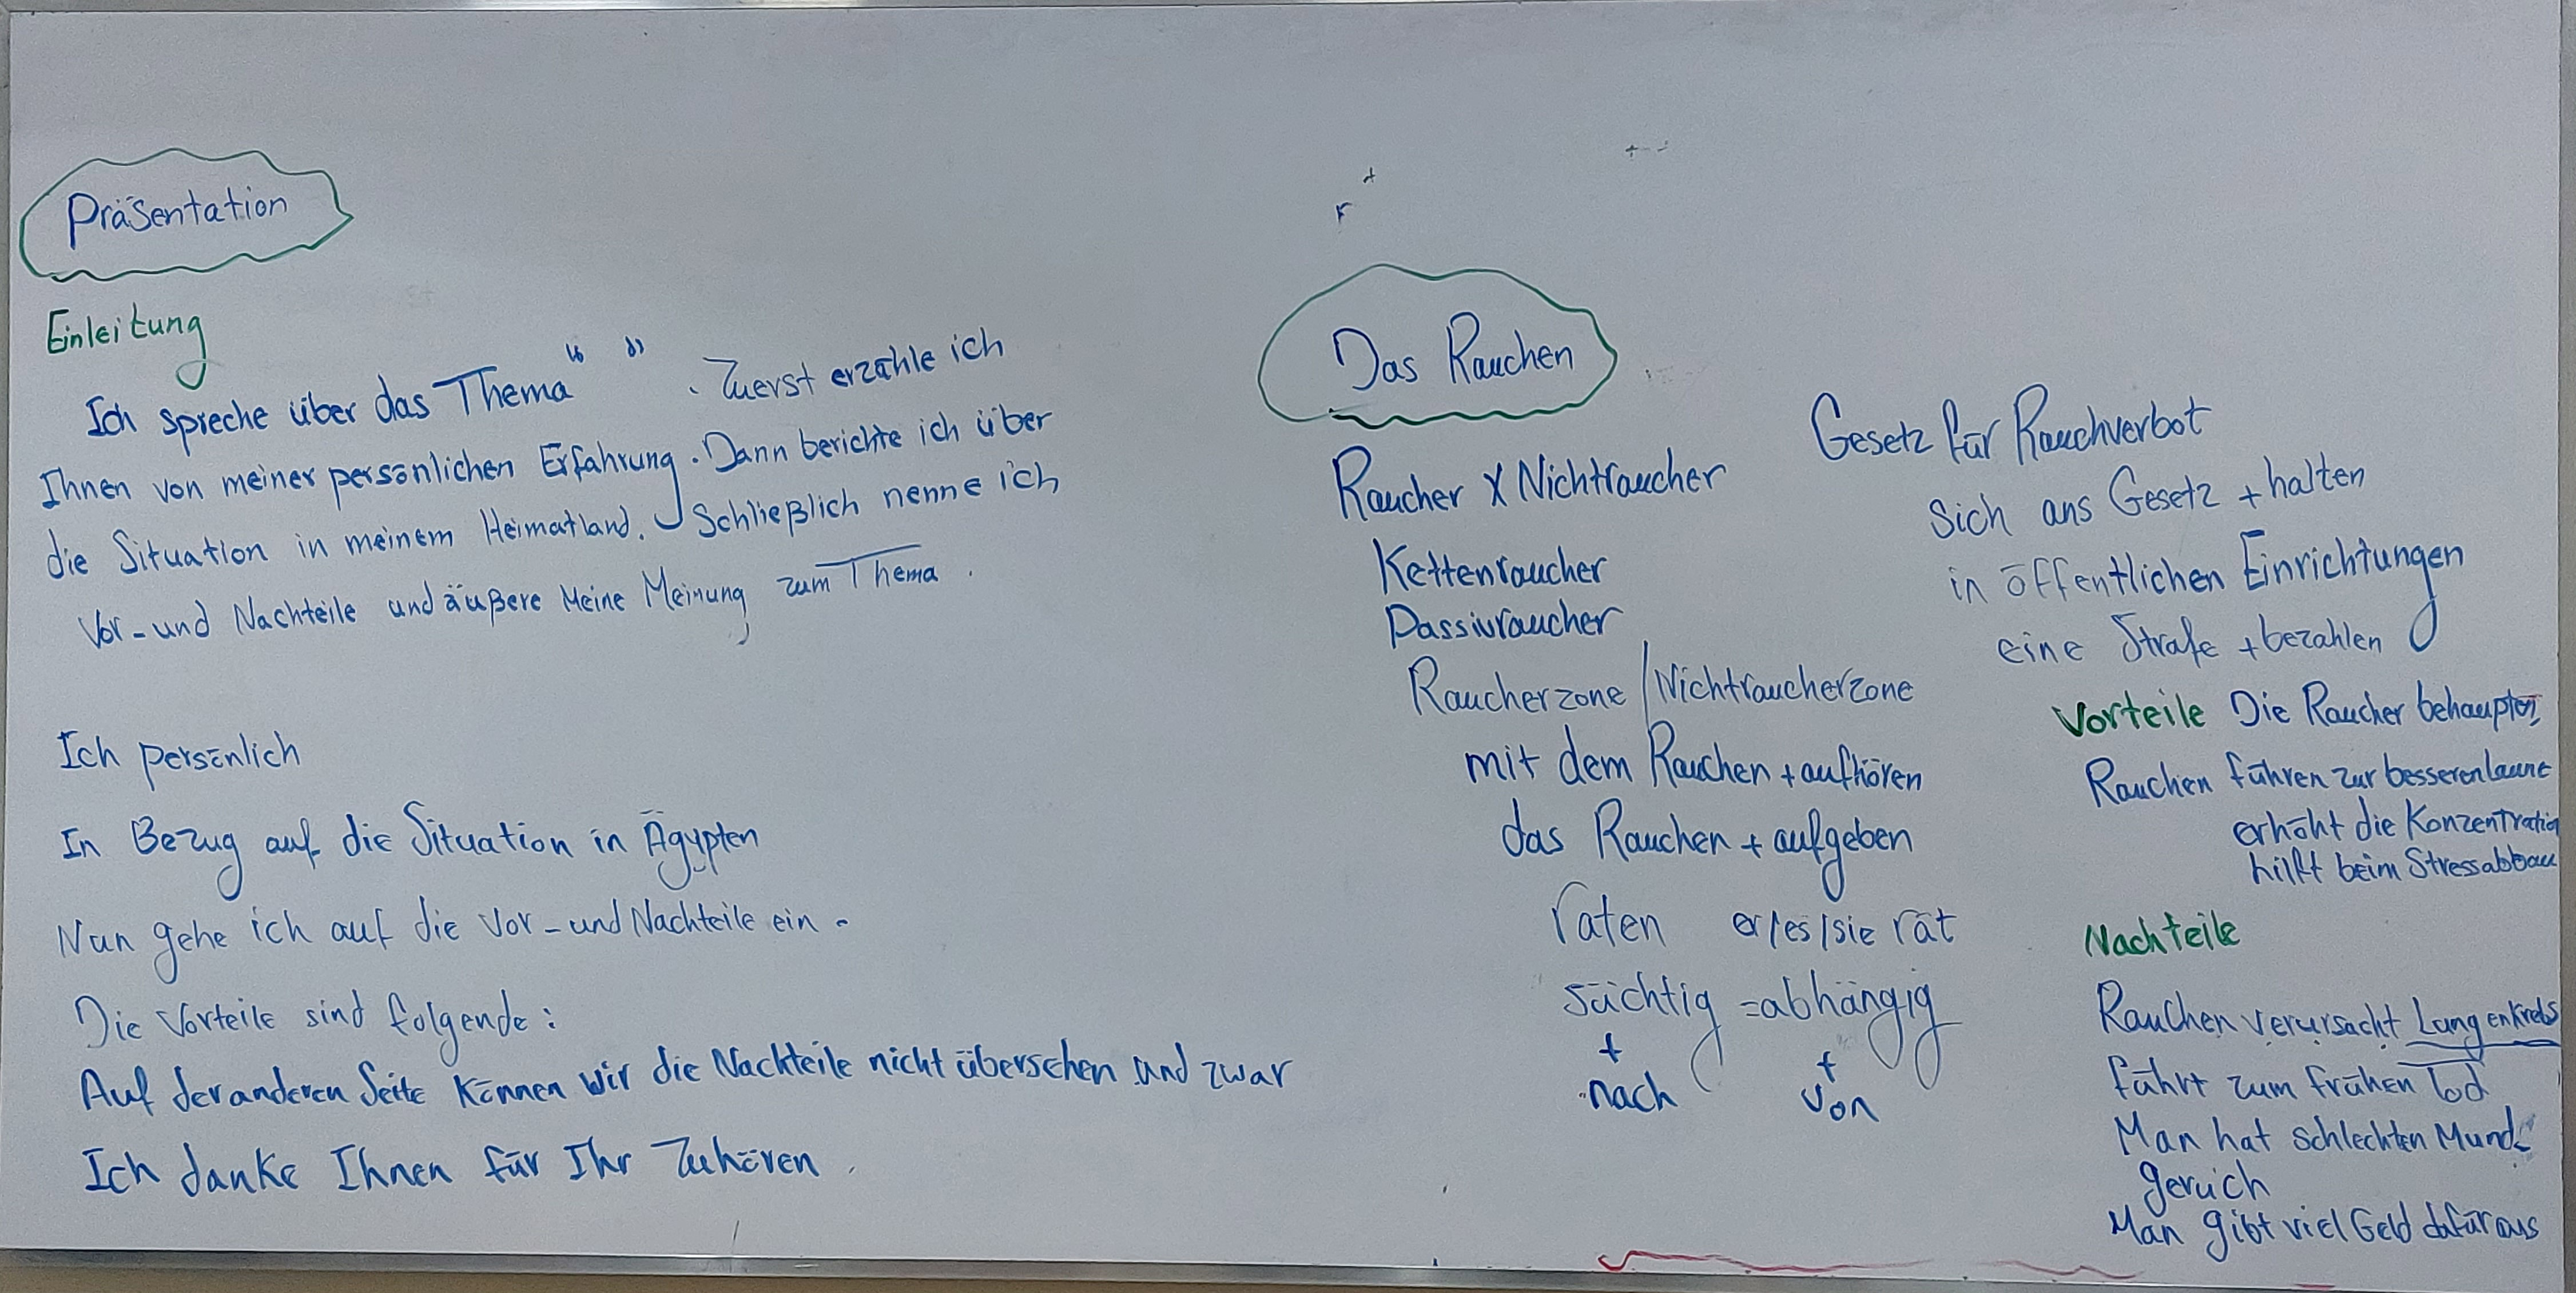 Präsentation
Einleitung
Ich spreche über das Thema " ". Zuerst erzähle ich
Ihnen von meiner persönlichen Erfahrung. Dann berichte ich über
die Situation in meinem Heimatland. Schließlich nenne ich
Vor-und Nachteile und äußere Meine Meinung zum Thema.
Ich persönlich
In Bezug auf die Situation in Ägypten
Nun gehe ich auf die Vor-und Nachteile ein.
Die Vorteile sind folgende:
Auf der anderen Seite können wir die Nachteile nicht übersehen und zwar
Ich danke Ihnen für Ihr Zuhören.
Das Rauchen
Raucher X Nichtraucher
Kettenraucher
Passivraucher
Raucherzone / Nichtraucherzone
mit dem Rauchen + aufhören
das Rauchen + aufgeben
raten er/es/sie rät
süchtig = abhängig
+ +
nach von
Gesetz für Rauchverbot
sich ans Gesetz + halten
in öffentlichen Einrichtungen
eine Strafe + bezahlen
Vorteile Die Raucher behaupten,
Rauchen führen zur besseren laune
erhöht die Konzentration
hilft beim Stressabbau
Nachteile
Rauchen verursacht Lungenkrebs
führt zum frühen Tod
Man hat schlechten Mund-
geruch
Man gibt viel Geld dafür aus